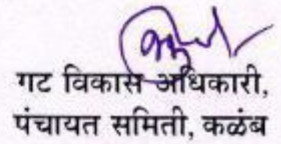 गट विकास अधिकारी,
पंचायत समिती, कळंब